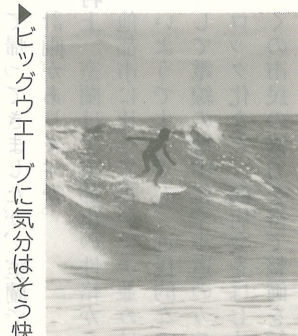 ▶ビッグウエーブに気分はそう快